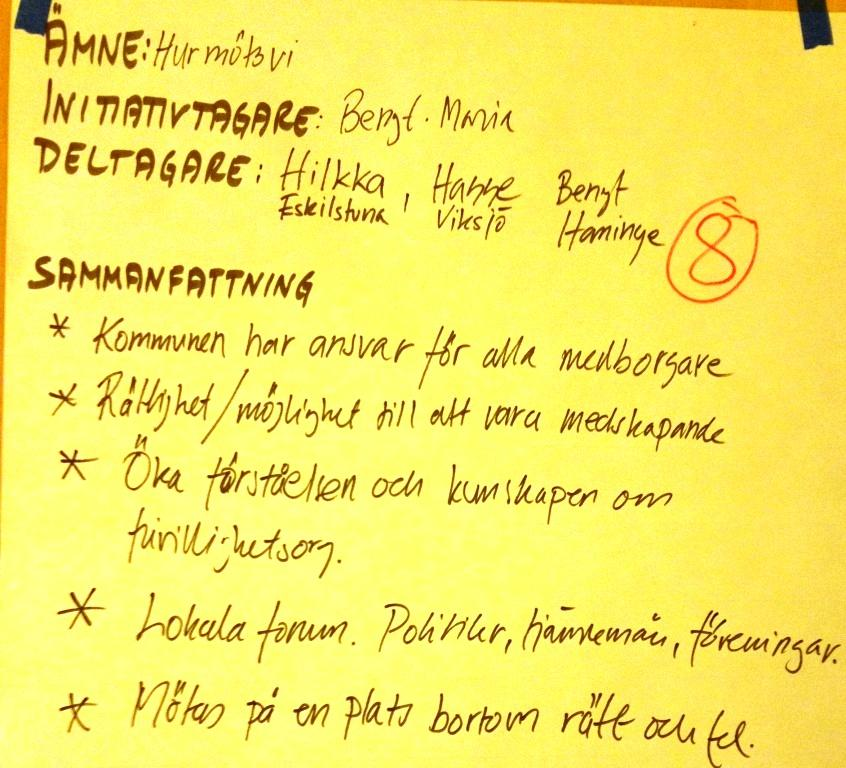 ÄMNE: Hur möts vi
INITIATIVTAGARE: Bengt. Maria
DELTAGARE: Hilkka, Hanne Bengt
Eskilstuna Viksjö Haninge
8
SAMMANFATTNING
* Kommunen har ansvar för alla medborgare
* Rättighet/möjlighet till att vara medskapande
* Öka förståelsen och kunskapen om
frivillighetsorg.
* Lokala forum. Politiker, tjänstemän, föreningar.
* Mötas på en plats bortom rätt och fel.